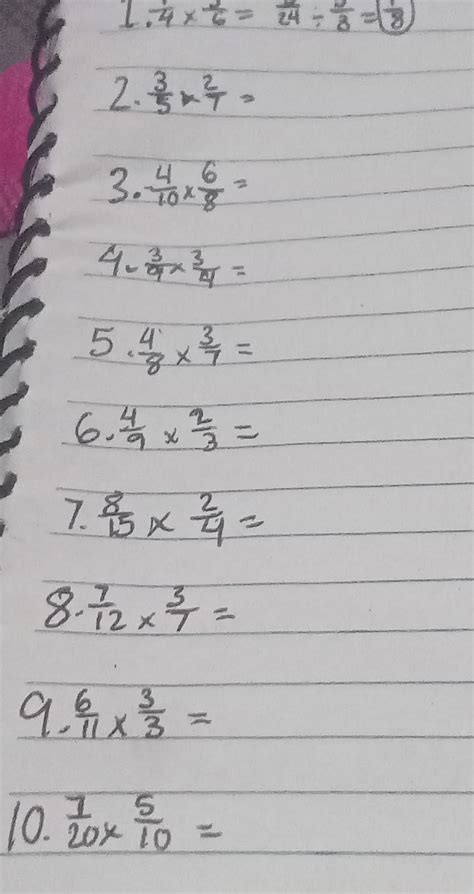 1. 1/4 × 3/6 = 3/24 ÷ 3/3 = 1/8
2. 3/5 × 2/7 =
3. 4/10 × 6/8 =
4. 3/9 × 3/4 =
5. 4/8 × 3/7 =
6. 4/9 × 2/3 =
7. 8/15 × 2/4 =
8. 7/12 × 3/7 =
9. 6/11 × 3/3 =
10. 7/20 × 5/10 =